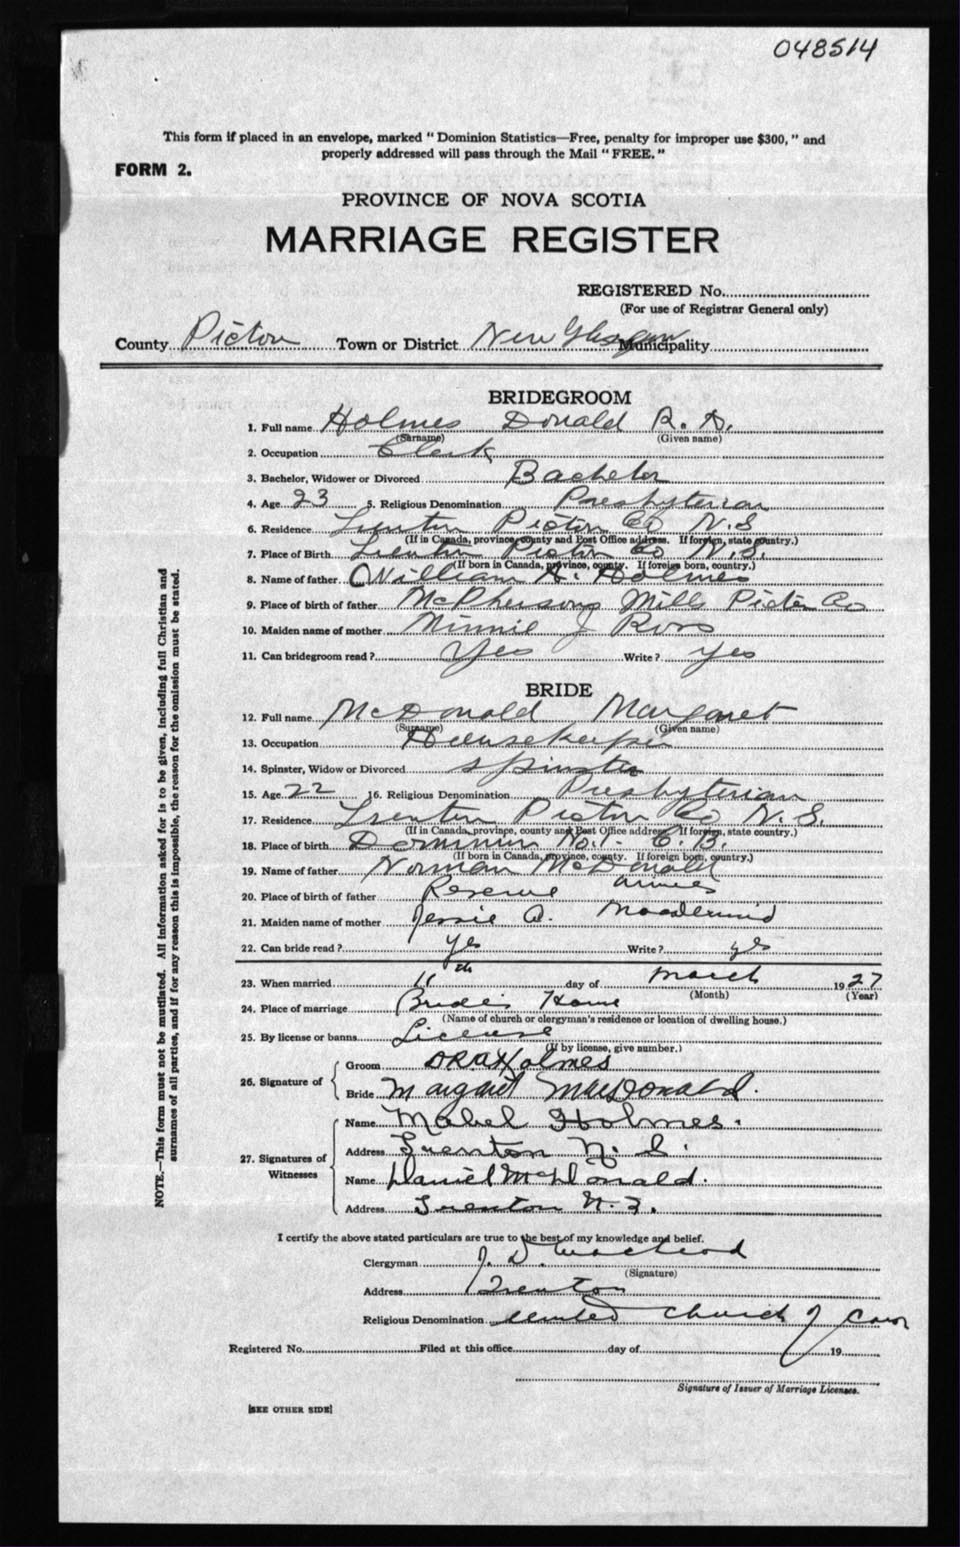 048514
This form if placed in an envelope, marked "Dominion Statistics—Free, penalty for improper use $300," and
properly addressed will pass through the Mail "FREE."
FORM 2.
PROVINCE OF NOVA SCOTIA
MARRIAGE REGISTER
REGISTERED No.
(For use of Registrar General only)
County Pictou Town or District New Glasgow Municipality
BRIDEGROOM
1. Full name Holmes Donald R. A.
(Surname) (Given name)
2. Occupation Clerk
3. Bachelor, Widower or Divorced Bachelor
4. Age 23 5. Religious Denomination Presbyterian
6. Residence Trenton Pictou Co N.S
(If in Canada, province, county and Post Office address. If foreign, state country.)
7. Place of Birth Trenton Pictou Co N.S.
(If born in Canada, province, county. If foreign born, country.)
8. Name of father William H. Holmes
9. Place of birth of father McPhersons Mills Pictou Co
10. Maiden name of mother Minnie J Ross
11. Can bridegroom read? Yes Write? yes
BRIDE
12. Full name McDonald Margaret
(Surname) (Given name)
13. Occupation Housekeeper
14. Spinster, Widow or Divorced Spinster
15. Age 22 16. Religious Denomination Presbyterian
17. Residence Trenton Pictou Co N.S.
(If in Canada, province, county and Post Office address. If foreign, state country.)
18. Place of birth Dominion No.1. C.B.
(If born in Canada, province, county. If foreign born, country.)
19. Name of father Norman McDonald
20. Place of birth of father Reserve Mines
21. Maiden name of mother Jessie A.
22. Can bride read? yes Write? yes
23. When married 11th day of March 1927
(Month) (Year)
24. Place of marriage Bride's Home
(Name of church or clergyman's residence or location of dwelling house.)
25. By license or banns License
(If by license, give number.)
26. Signature of
Groom DRAHolmes
Bride Margaret MacDonald.
27. Signatures of Witnesses
Name Mabel Holmes.
Address Trenton N. S.
Name Daniel McDonald.
Address Trenton N. S.
I certify the above stated particulars are true to the best of my knowledge and belief.
Clergyman J. D. Macleod
(Signature)
Address Trenton
Religious Denomination United Church of Can
Registered No. Filed at this office day of 19
Signature of Issuer of Marriage Licenses.
[SEE OTHER SIDE]
NOTE.—This form must not be mutilated. All information asked for is to be given, including full Christian and
surnames of all parties, and if for any reason this is impossible, the reason for the omission must be stated.